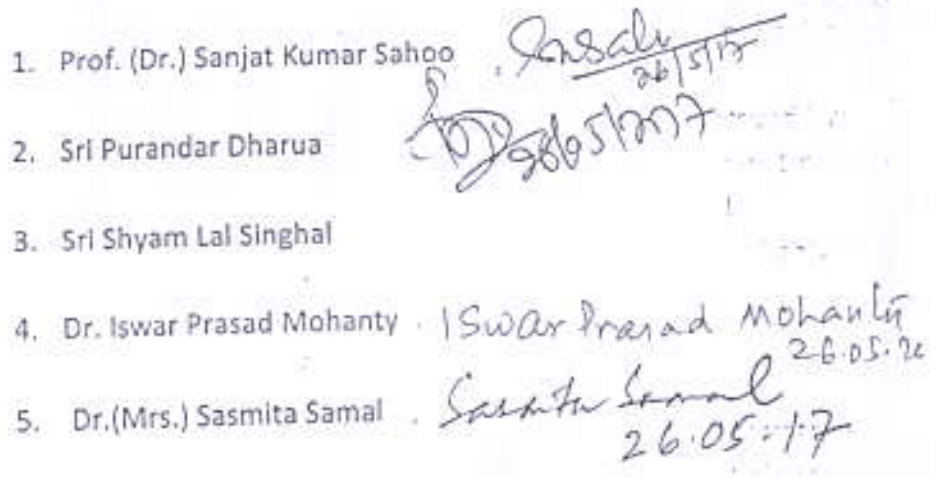 1. Prof. (Dr.) Sanjat Kumar Sahoo
26/5/17
2. Sri Purandar Dharua
26/05/2017
3. Sri Shyam Lal Singhal
4. Dr. Iswar Prasad Mohanty Iswar Prasad Mohanty
26.05.20
5. Dr.(Mrs.) Sasmita Samal Sasmita Samal
26.05.17